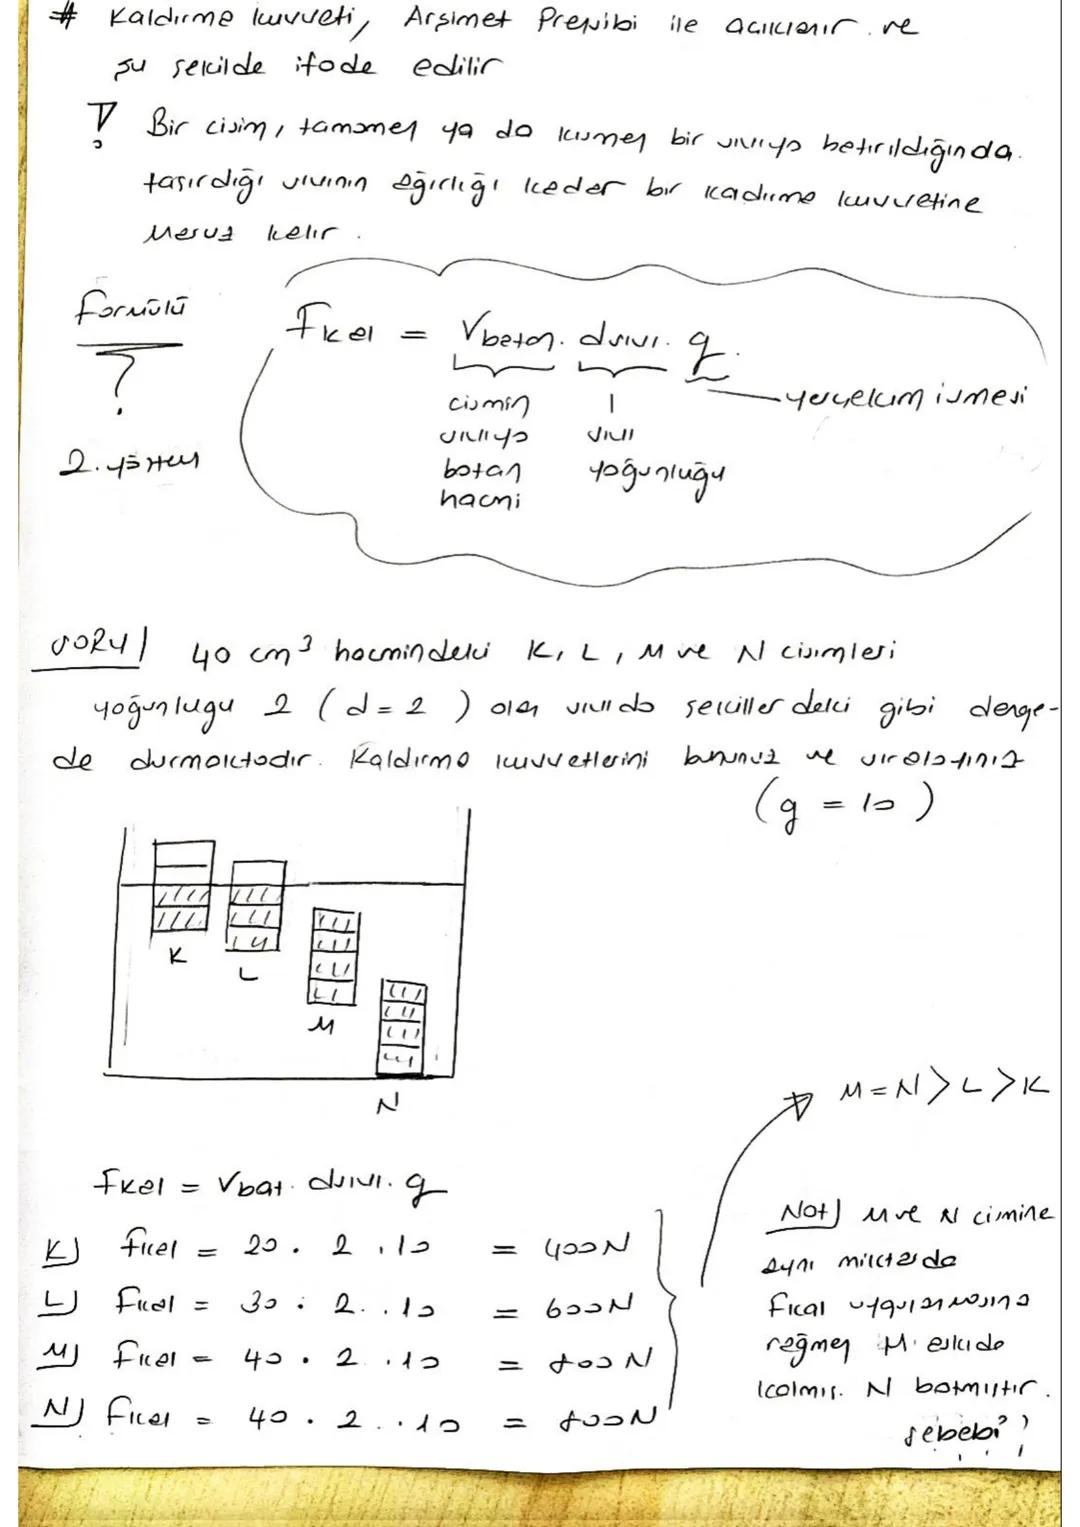 # Kaldırma kuvveti, Arşimet Prensibi ile açıklanır. ve
şu şekilde ifade edilir
! Bir cisim, tamamen ya da kısmen bir sıvıya batırıldığında.
taşırdığı sıvının ağırlığı kadar bir kaldırma kuvvetine
maruz kalır.
formülü
?
2. yöntem
Fkal = Vbatan. dsıvı. g.
cismin
sıvıya
batan
hacmi
sıvı
yoğunluğu
yerçekim ivmesi
SORU) 40 cm³ hacmindeki K, L, M ve N cisimleri
yoğunlugu 2 (d = 2) olan sıvıda şekillerdeki gibi denge-
de durmaktadır. Kaldırma kuvvetlerini bununuz ve sıralatınız
(g = 10)
K
L
M
N
M = N > L > K
Fkal = Vbat. dsıvı. g
K) fkal = 20 . 2 . 10 = 400N
L) fkal = 30 . 2 . . 10 = 600N
M) fkal = 40 . 2 . 10 = 800N
N) fkal = 40 . 2 . . 10 = 800N
Not) M ve N cimine
aynı miktarda
fkal uygulanmasına
rağmen M. askıda
kalmış. N batmıştır.
sebebi?